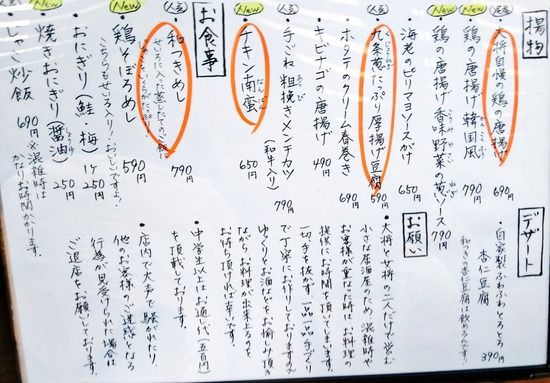 揚物
人気
大将自慢の鶏の唐揚げ 690円
New
鶏の唐揚げ韓国風 790円
New
鶏の唐揚げ香味野菜の葱ソース 790円
海老のピリマヨソースがけ 650円
人気
九条葱たっぷり厚揚げ豆腐 590円
ホタテのクリーム春巻き 690円
キビナゴの唐揚げ 490円
手ごね粗挽きメンチカツ(和牛入り) 790円
人気
チキン南蛮 650円
なんばん
お食事
人気
和風きめし 790円
New
鶏そぼろめし 590円
こちらもせいろ入り!おいしいですよ!
おにぎり(鮭、梅) 1ヶ 250円
New
焼きおにぎり(醤油) 250円
じゃこ炒飯 690円 ※混雑時は
かなりお時間かかります。
デザート
・自家製ふわふわとろとろ
杏仁豆腐 390円
お願い
・大将と女将の二人だけで営む
小さな居酒屋のため、混雑時や
お客様が重なった時は、お料理の
提供にお時間を頂いています。
一切手を抜かず、一品一品手づくり
で丁寧にお作りしております。
ゆっくりとお酒などをお楽しみ頂き
ながら、お料理が出来上るのを
お待ち頂ければ幸いです。
・中学生以上はお通し代(五百円)
を頂戴しております。
・店内で大声で騒がれたり、
他のお客様のご迷惑となる
行為が見受けられた場合は
ご退店をお願いしております。